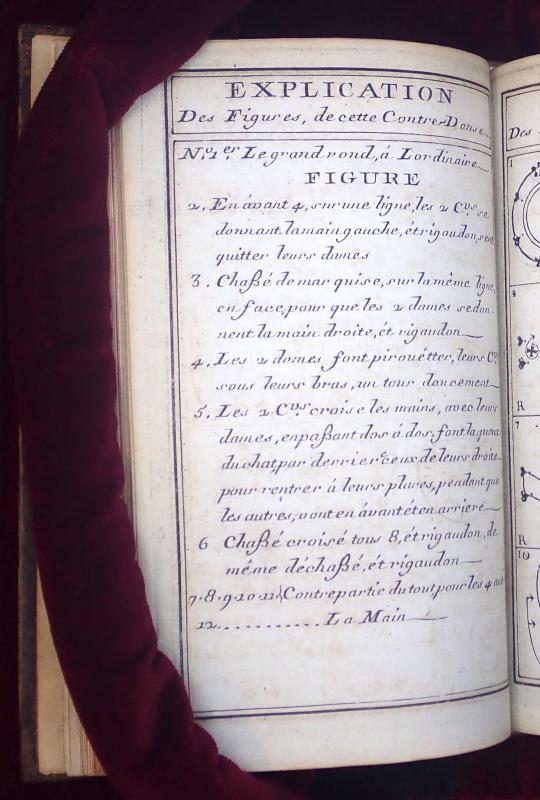 EXPLICATION
Des Figures, de cette ContreDanse
N.º 1.er Le grand rond, á Lordinaire
FIGURE
2. En ávant 4, sur une ligne, les 2 C.vs se
donnant la main gauche, ét rigaudon, sens
quitter leurs dames
3. Chaßé de mar quise, sur la même ligne,
en face, pour que les 2 dames se don-
nent la main droite, ét rigaudon
4. Les 2 dames font pirouétter, leurs C.vs
sous leurs bras, un tour doucement
5. Les 2 C.vs croise les mains, avec leurs
dames, en paßant dos á dos, font la queue
du chat, par derriere ceux de leurs droite
pour rentrer á leurs places, pendant que
les autres, vont en ávant ét en arriere
6 Chaßé croisé tous 8, ét rigaudon, de
même déchaßé, ét rigaudon
7.8.9.10.11. Contrepartie du tout pour les 4 aut
12........... La Main
Des
1
4
R
7
R
10